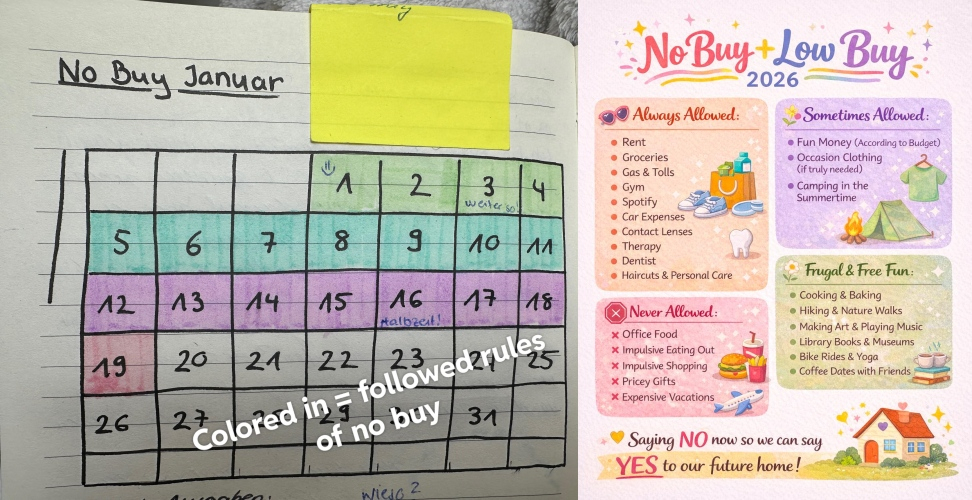 No Buy Januar
1 2 3 4
weiter so!
5 6 7 8 9 10 11
12 13 14 15 16 17 18
Halbzeit!
19 20 21 22 23 24 25
26 27 28 29 31
Colored in = followed rules
of no buy
Ausgaben:
wieso?
No Buy + Low Buy
2026
Always Allowed:
Rent
Groceries
Gas & Tolls
Gym
Spotify
Car Expenses
Contact Lenses
Therapy
Dentist
Haircuts & Personal Care
Never Allowed:
Office Food
Impulsive Eating Out
Impulsive Shopping
Pricey Gifts
Expensive Vacations
Sometimes Allowed:
Fun Money (According to Budget)
Occasion Clothing
(if truly needed)
Camping in the
Summertime
Frugal & Free Fun:
Cooking & Baking
Hiking & Nature Walks
Making Art & Playing Music
Library Books & Museums
Bike Rides & Yoga
Coffee Dates with Friends
Saying NO now so we can say
YES to our future home!